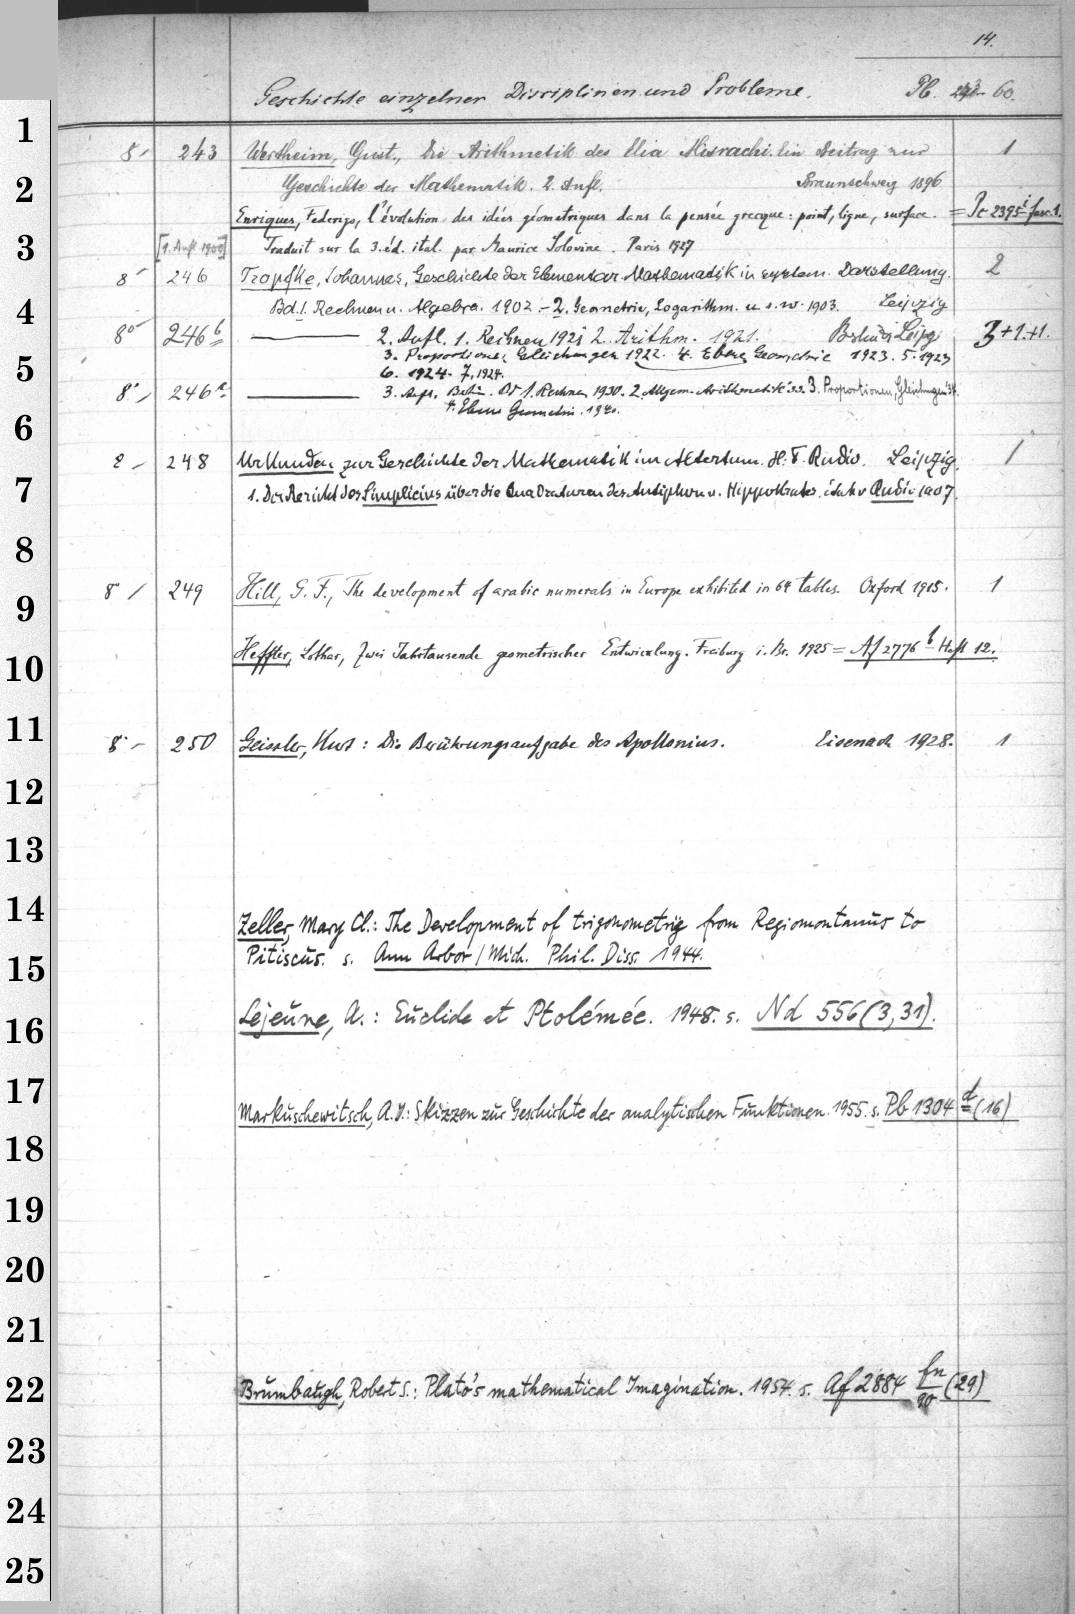 14.
Geschichte einzelner Disciplinen und Probleme. Pb. 60.
1
8° 243 Wertheim, Gust., Die Arithmetik des Elia Misrachi. Ein Beitrag zur 1
2
Geschichte der Mathematik. 2. Aufl. Braunschweig 1896
Enriques, Federigo, l'évolution des idées géometriques dans la pensée grecque: point, ligne, surface. = Pc 2395 i fasc. 1.
3
[1. Aufl. 1900] Traduit sur la 3. éd. ital. par Maurice Solovine. Paris 1927
8° 246 Tropfke, Johannes, Geschichte der Elementar-Mathematik in system. Darstellung. 2
4
Bd. 1. Rechnen u. Algebra. 1902 - 2. Geometrie, Logarithm. u. s. w. 1903. Leipzig
8° 246 b ——— 2. Aufl. 1. Rechnen 1921 2. Arithm. 1921. Berlin u Leipz 3+1.+1.
3. Proportionen, Gleichungen 1922. 4. Ebene Geometrie 1923. 5. 1923
5
6. 1924. 7. 1924.
8° 246 c ——— 3. Aufl. Berlin. Bd 1. Rechnen 1930. 2. Allgem. Arithmetik 3. Proportionen, Gleichungen
4. Ebene Geometrie. 1940.
6
8 248 Urkunden zur Geschichte der Mathematik im Altertum. H. F. Rudio. Leipzig. 1
7
1. Der Bericht des Simplicius über die Quadraturen des Antiphon u. Hippokrates. v Rudio 1907.
8
8° 249 Hill, G. F., The development of arabic numerals in Europe exhibited in 64 tables. Oxford 1915. 1
9
10
Heffter, Lothar, Zwei Jahrtausende geometrischer Entwicklung. Freiburg i. Br. 1925 = Af 2776 b Heft 12.
11
8° 250 Geissler, Kurt: Die Berührungsaufgabe des Apollonius. Eisenach 1928. 1
12
13
14
Zeller, Mary Cl.: The Development of trigonometrie from Regiomontanus to
15
Pitiscus. s. Ann Arbor / Mich. Phil. Diss. 1944.
16
Lejeune, A.: Euclide et Ptolémée. 1948. s. Nd 556 (3,31).
17
Markuschewitsch, A. I.: Skizzen zur Geschichte der analytischen Funktionen. 1955. s. Pb 1304 d (16)
18
19
20
21
22
Brumbaugh, Robert S.: Plato's mathematical Imagination. 1954. s. Af 2884 fn/90 (29)
23
24
25